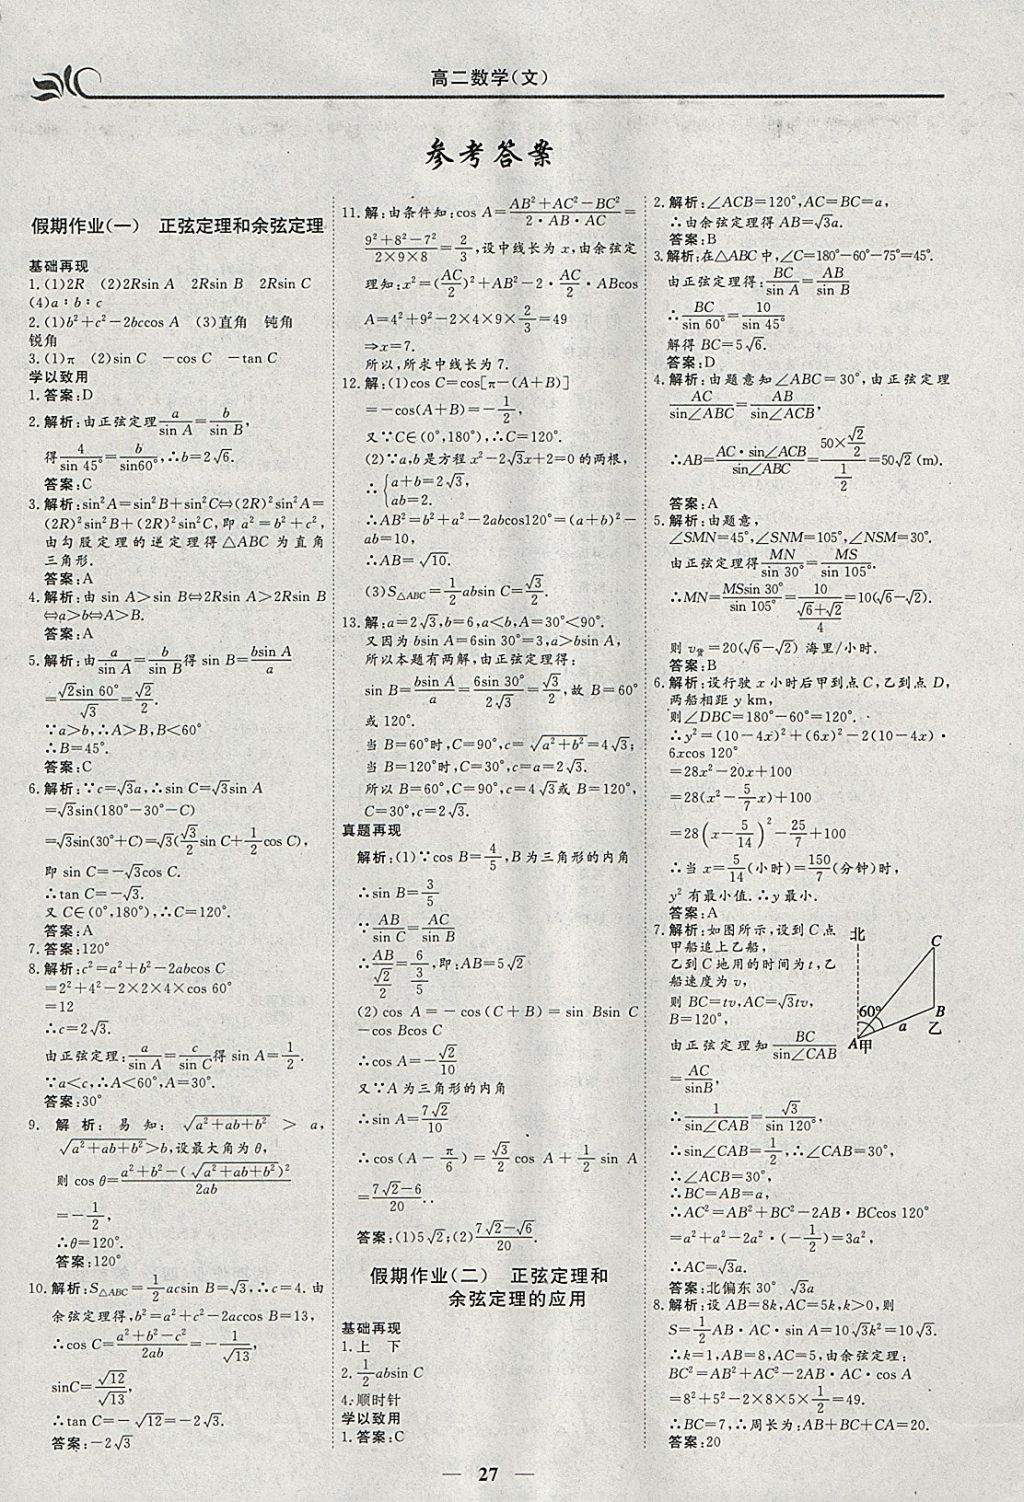 高二数学(文)
参考答案
假期作业(一)　正弦定理和余弦定理
基础再现
1.(1)2R　(2)2Rsin A　2Rsin B　2Rsin C
(4)a∶b∶c
2.(1)b²+c²-2bccos A　(3)直角　钝角
锐角
3.(1)π　(2)sin C　-cos C　-tan C
学以致用
1.答案:D
2.解析:由正弦定理a/sin A=b/sin B,
得4/sin 45°=b/sin60°,∴b=2√6.
答案:C
3.解析:sin²A=sin²B+sin²C⇔(2R)²sin²A=
(2R)²sin²B+(2R)²sin²C,即 a²=b²+c²,
由勾股定理的逆定理得△ABC 为直角
三角形.
答案:A
4.解析:由 sin A>sin B⇔2Rsin A>2Rsin B
⇔a>b⇔A>B.
答案:A
5.解析:由a/sin A=b/sin B得 sin B=bsin A/a
=√2sin 60°/√3=√2/2.
∵a>b,∴A>B,B<60°
∴B=45°.
答案:C
6.解析:∵c=√3a,∴sin C=√3sin A
=√3sin(180°-30°-C)
=√3sin(30°+C)=√3(√3/2sin C+1/2cos C),
即 sin C=-√3cos C.
∴tan C=-√3.
又 C∈(0°,180°),∴C=120°.
答案:A
7.答案:120°
8.解析:c²=a²+b²-2abcos C
=2²+4²-2×2×4×cos 60°
=12
∴c=2√3.
由正弦定理:a/sin A=c/sin C得 sin A=1/2.
∵a<c,∴A<60°,A=30°.
答案:30°
9.解析:易知:√(a²+ab+b²)>a,
√(a²+ab+b²)>b,设最大角为 θ,
则 cos θ=(a²+b²-(√(a²+ab+b²))²)/2ab
=-1/2,
∴θ=120°.
答案:120°
10.解析:S△ABC=1/2acsin B=√3,∴c=4. 由
余弦定理得,b²=a²+c²-2accos B=13,
∴cos C=(a²+b²-c²)/2ab=-1/√13,
sinC=√12/√13.
∴tan C=-√12=-2√3.
答案:-2√3
11.解:由条件知:cos A=(AB²+AC²-BC²)/(2·AB·AC)=
(9²+8²-7²)/(2×9×8)=2/3,设中线长为 x,由余弦定
理知:x²=(AC/2)²+AB²-2·AC/2·ABcos
A=4²+9²-2×4×9×2/3=49
⇒x=7.
所以,所求中线长为 7.
12.解:(1)cos C=cos[π-(A+B)]
=-cos(A+B)=-1/2,
又∵C∈(0°,180°),∴C=120°.
(2)∵a,b 是方程 x²-2√3x+2=0 的两根,
∴{a+b=2√3,
ab=2.
∴AB²=b²+a²-2abcos120°=(a+b)²-
ab=10,
∴AB=√10.
(3)S△ABC=1/2absin C=√3/2.
13.解:a=2√3,b=6,a<b,A=30°<90°.
又因为 bsin A=6sin 30°=3,a>bsin A,
所以本题有两解,由正弦定理得:
sin B=bsin A/a=6sin 30°/2√3=√3/2,故 B=60°
或 120°.
当 B=60°时,C=90°,c=√(a²+b²)=4√3;
当 B=120°时,C=30°,c=a=2√3.
所以 B=60°,C=90°,c=4√3或 B=120°,
C=30°,c=2√3.
真题再现
解析:(1)∵cos B=4/5,B 为三角形的内角
∴sin B=3/5
∵AB/sin C=AC/sin B
∴AB/(√2/2)=6/(3/5),即:AB=5√2
(2)cos A=-cos(C+B)=sin Bsin C
-cos Bcos C
∴cos A=-√2/10
又∵A 为三角形的内角
∴sin A=7√2/10
∴cos(A-π/6)=√3/2cos A+1/2sin A
=(7√2-6)/20..
答案:(1)5√2;(2)(7√2-√6)/20.
假期作业(二)　正弦定理和
余弦定理的应用
基础再现
1.上　下
2.1/2absin C
4.顺时针
学以致用
1.答案:C
2.解析:∠ACB=120°,AC=BC=a,
∴由余弦定理得 AB=√3a.
答案:B
3.解析:在△ABC 中,∠C=180°-60°-75°=45°.
由正弦定理得:BC/sin A=AB/sin B
∴BC/sin 60°=10/sin 45°
解得 BC=5√6.
答案:D
4.解析:由题意知∠ABC=30°,由正弦定理
AC/sin∠ABC=AB/sin∠ACB,
∴AB=AC·sin∠ACB/sin∠ABC=(50×√2/2)/(1/2)=50√2 (m).
答案:A
5.解析:由题意,
∠SMN=45°,∠SNM=105°,∠NSM=30°.
由正弦定理得MN/sin 30°=MS/sin 105°.
∴MN=MSsin 30°/sin 105°=10/((√6+√2)/4)=10(√6-√2).
则 v货=20(√6-√2) 海里/小时.
答案:B
6.解析:设行驶 x 小时后甲到点 C,乙到点 D,
两船相距 y km,
则∠DBC=180°-60°=120°.
∴y²=(10-4x)²+(6x)²-2(10-4x)·
6xcos 120°
=28x²-20x+100
=28(x²-5/7x)+100
=28(x-5/14)²-25/7+100
∴当 x=5/14(小时)=150/7(分钟)时,
y² 有最小值.∴y 最小.
答案:A
7.解析:如图所示,设到 C 点
甲船追上乙船,
乙到 C 地用的时间为 t,乙
船速度为 v,
则 BC=tv,AC=√3tv,
B=120°,
由正弦定理知BC/sin∠CAB
=AC/sinB,
∴1/sin∠CAB=√3/sin 120°,
∴sin∠CAB=1/2,∴∠CAB=30°,
∴∠ACB=30°,
∴BC=AB=a,
∴AC²=AB²+BC²-2AB·BCcos 120°
=a²+a²-2a²·(-1/2)=3a²,
∴AC=√3a.
答案:北偏东 30°　√3a
北
C
60°
B
a
乙
A甲
8.解析:设 AB=8k,AC=5k,k>0,则
S=1/2AB·AC·sin A=10√3k²=10√3.
∴k=1,AB=8,AC=5,由余弦定理:
BC²=AB²+AC²-2AB·AC·cos A
=8²+5²-2×8×5×1/2=49.
∴BC=7,∴周长为:AB+BC+CA=20.
答案:20
— 27 —